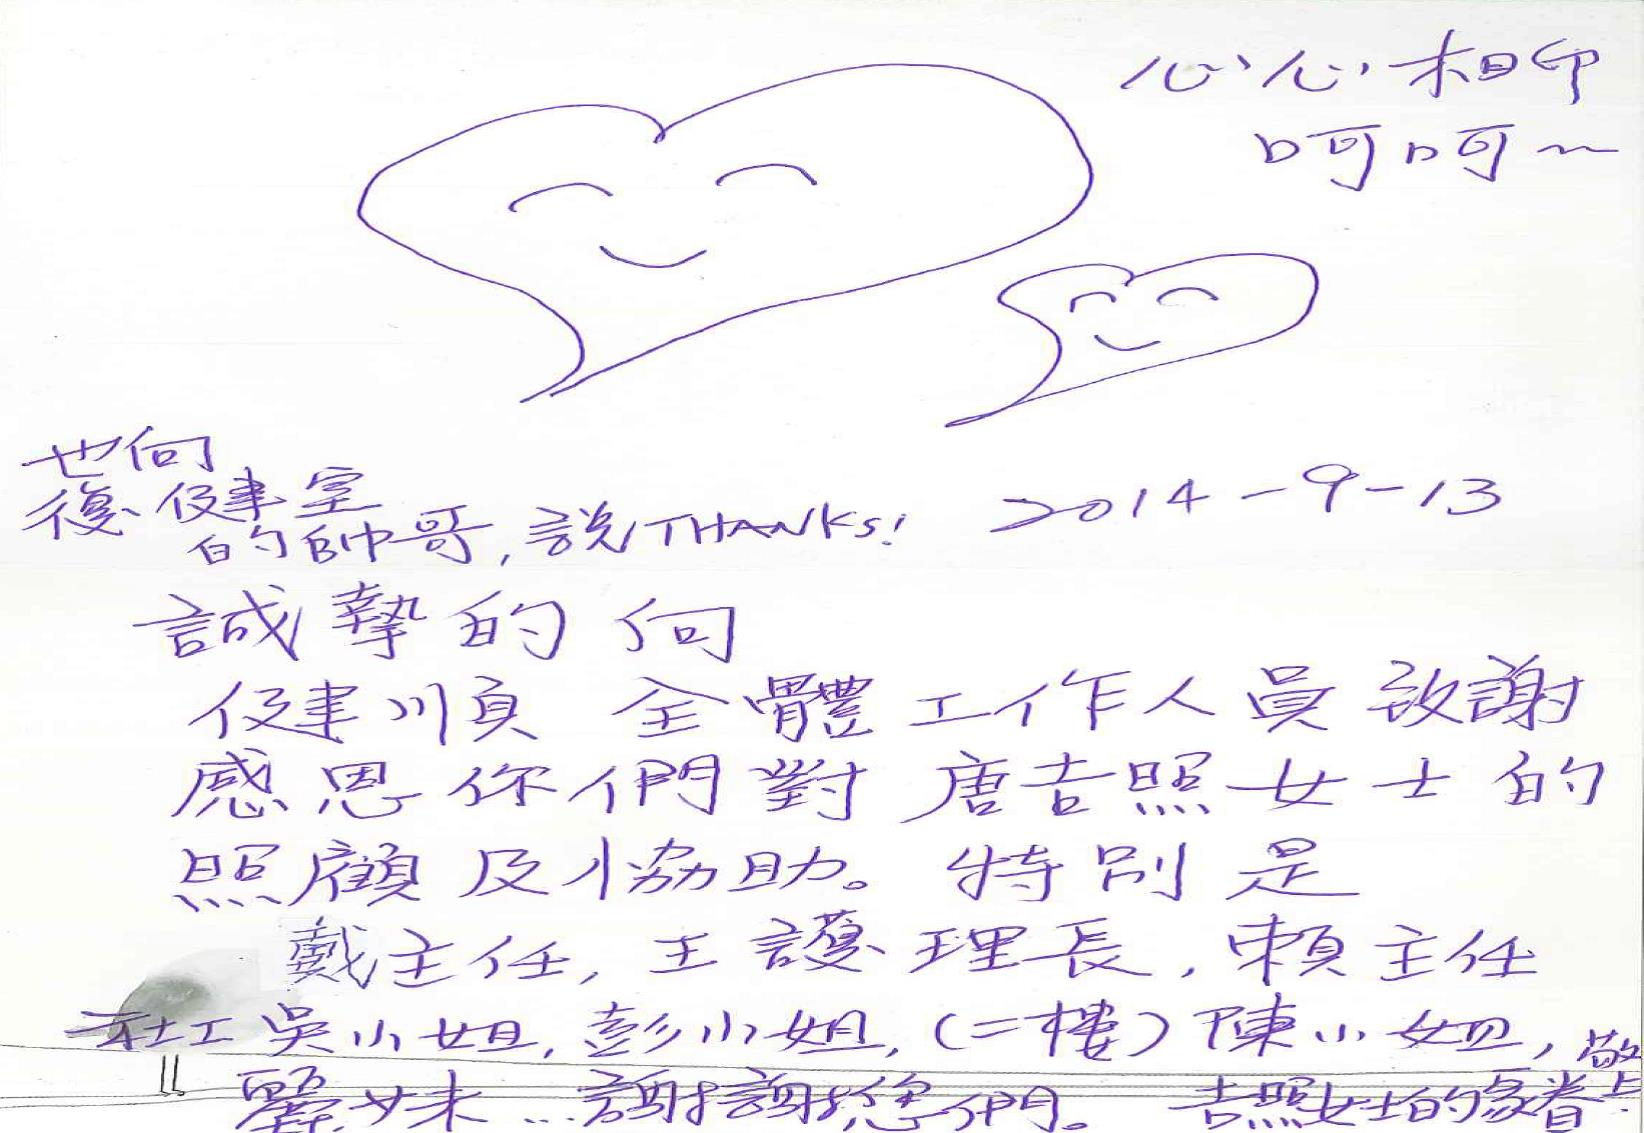 心心相印
呵呵~
也向
復健室
的帥哥,說THANKS!
2014-9-13
誠摯的向
健順 全體工作人員致謝
感恩你們對唐吉照女士的
照顧及協助。特別是
戴主任,王護理長,賴主任
社工吳小姐,彭小姐,(二樓)陳小姐,
麗妹...謝謝您們。 吉照女士的家眷敬上